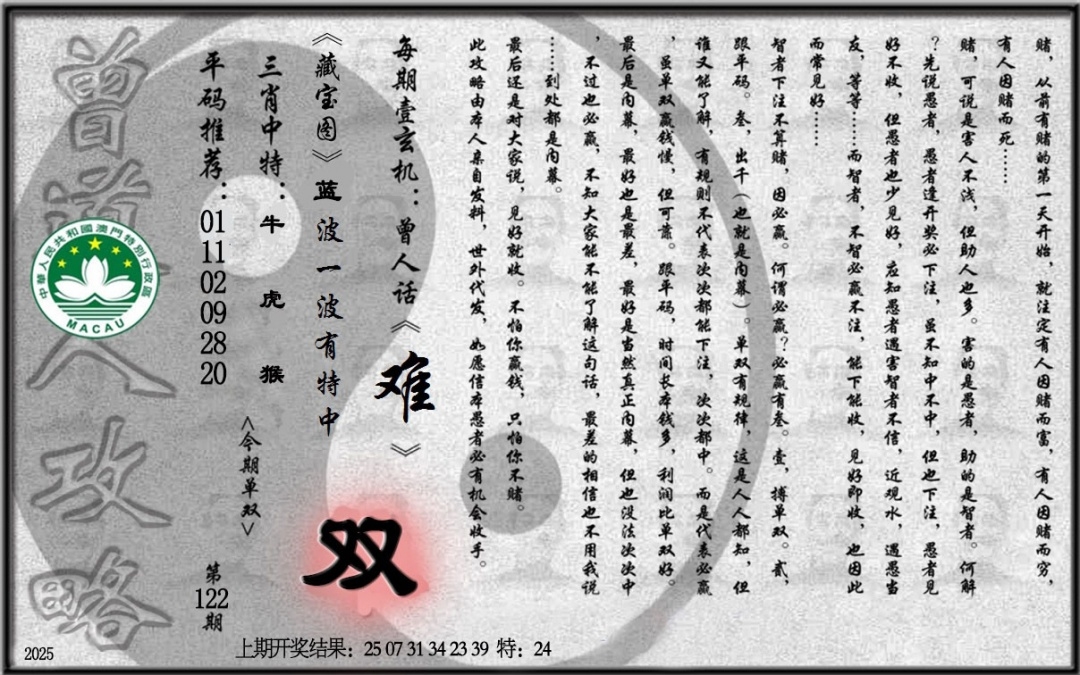 赌，从前有赌的第一天开始，就注定有人因赌而富，有人因赌而穷，
有人因赌而死……
赌，可说是害人不浅，但助人也多。害的是愚者，助的是智者。何解
？先说愚者，愚者逢开奖必下注，虽不知中不中，但也下注，愚者见
好不收，但愚者也少见好，应知愚者遇害智者不信，近观水，遇愚当
友，等等……而智者，不智必赢不注，能下能收，见好即收，也因此
而常见好……
智者下注不算赌，因必赢。何谓必赢？必赢有叁。壹，搏单双。贰，
跟平码。叁，出千（也就是内幕）。单双有规律，这是人人都知，但
谁又能了解，有规则不代表次次都能下注，次次都中。而是代表必赢
，虽单双赢钱慢，但可靠。跟平码，时间长本钱多，利润比单双好。
最后是内幕，最好也是最差，最好是当然真正内幕，但也没法次次中
，不过也必赢，不知大家能不能了解这句话，最差的相信也不用我说
……到处都是内幕。
最后还是对大家说，见好就收。不怕你赢钱，只怕你不赌。
此攻略由本人亲自发料，世外代发，如愿信本愚者必有机会收手。
每期壹玄机：曾人话《难》
《藏宝图》蓝波一波有特中
双
三肖中特：牛 虎 猴
<今期单双>
平码推荐：01 11 02 09 28 20
第122期
曾道人攻略
中華人民共和國澳門特別行政區
MACAU
2025
上期开奖结果：25 07 31 34 23 39 特：24